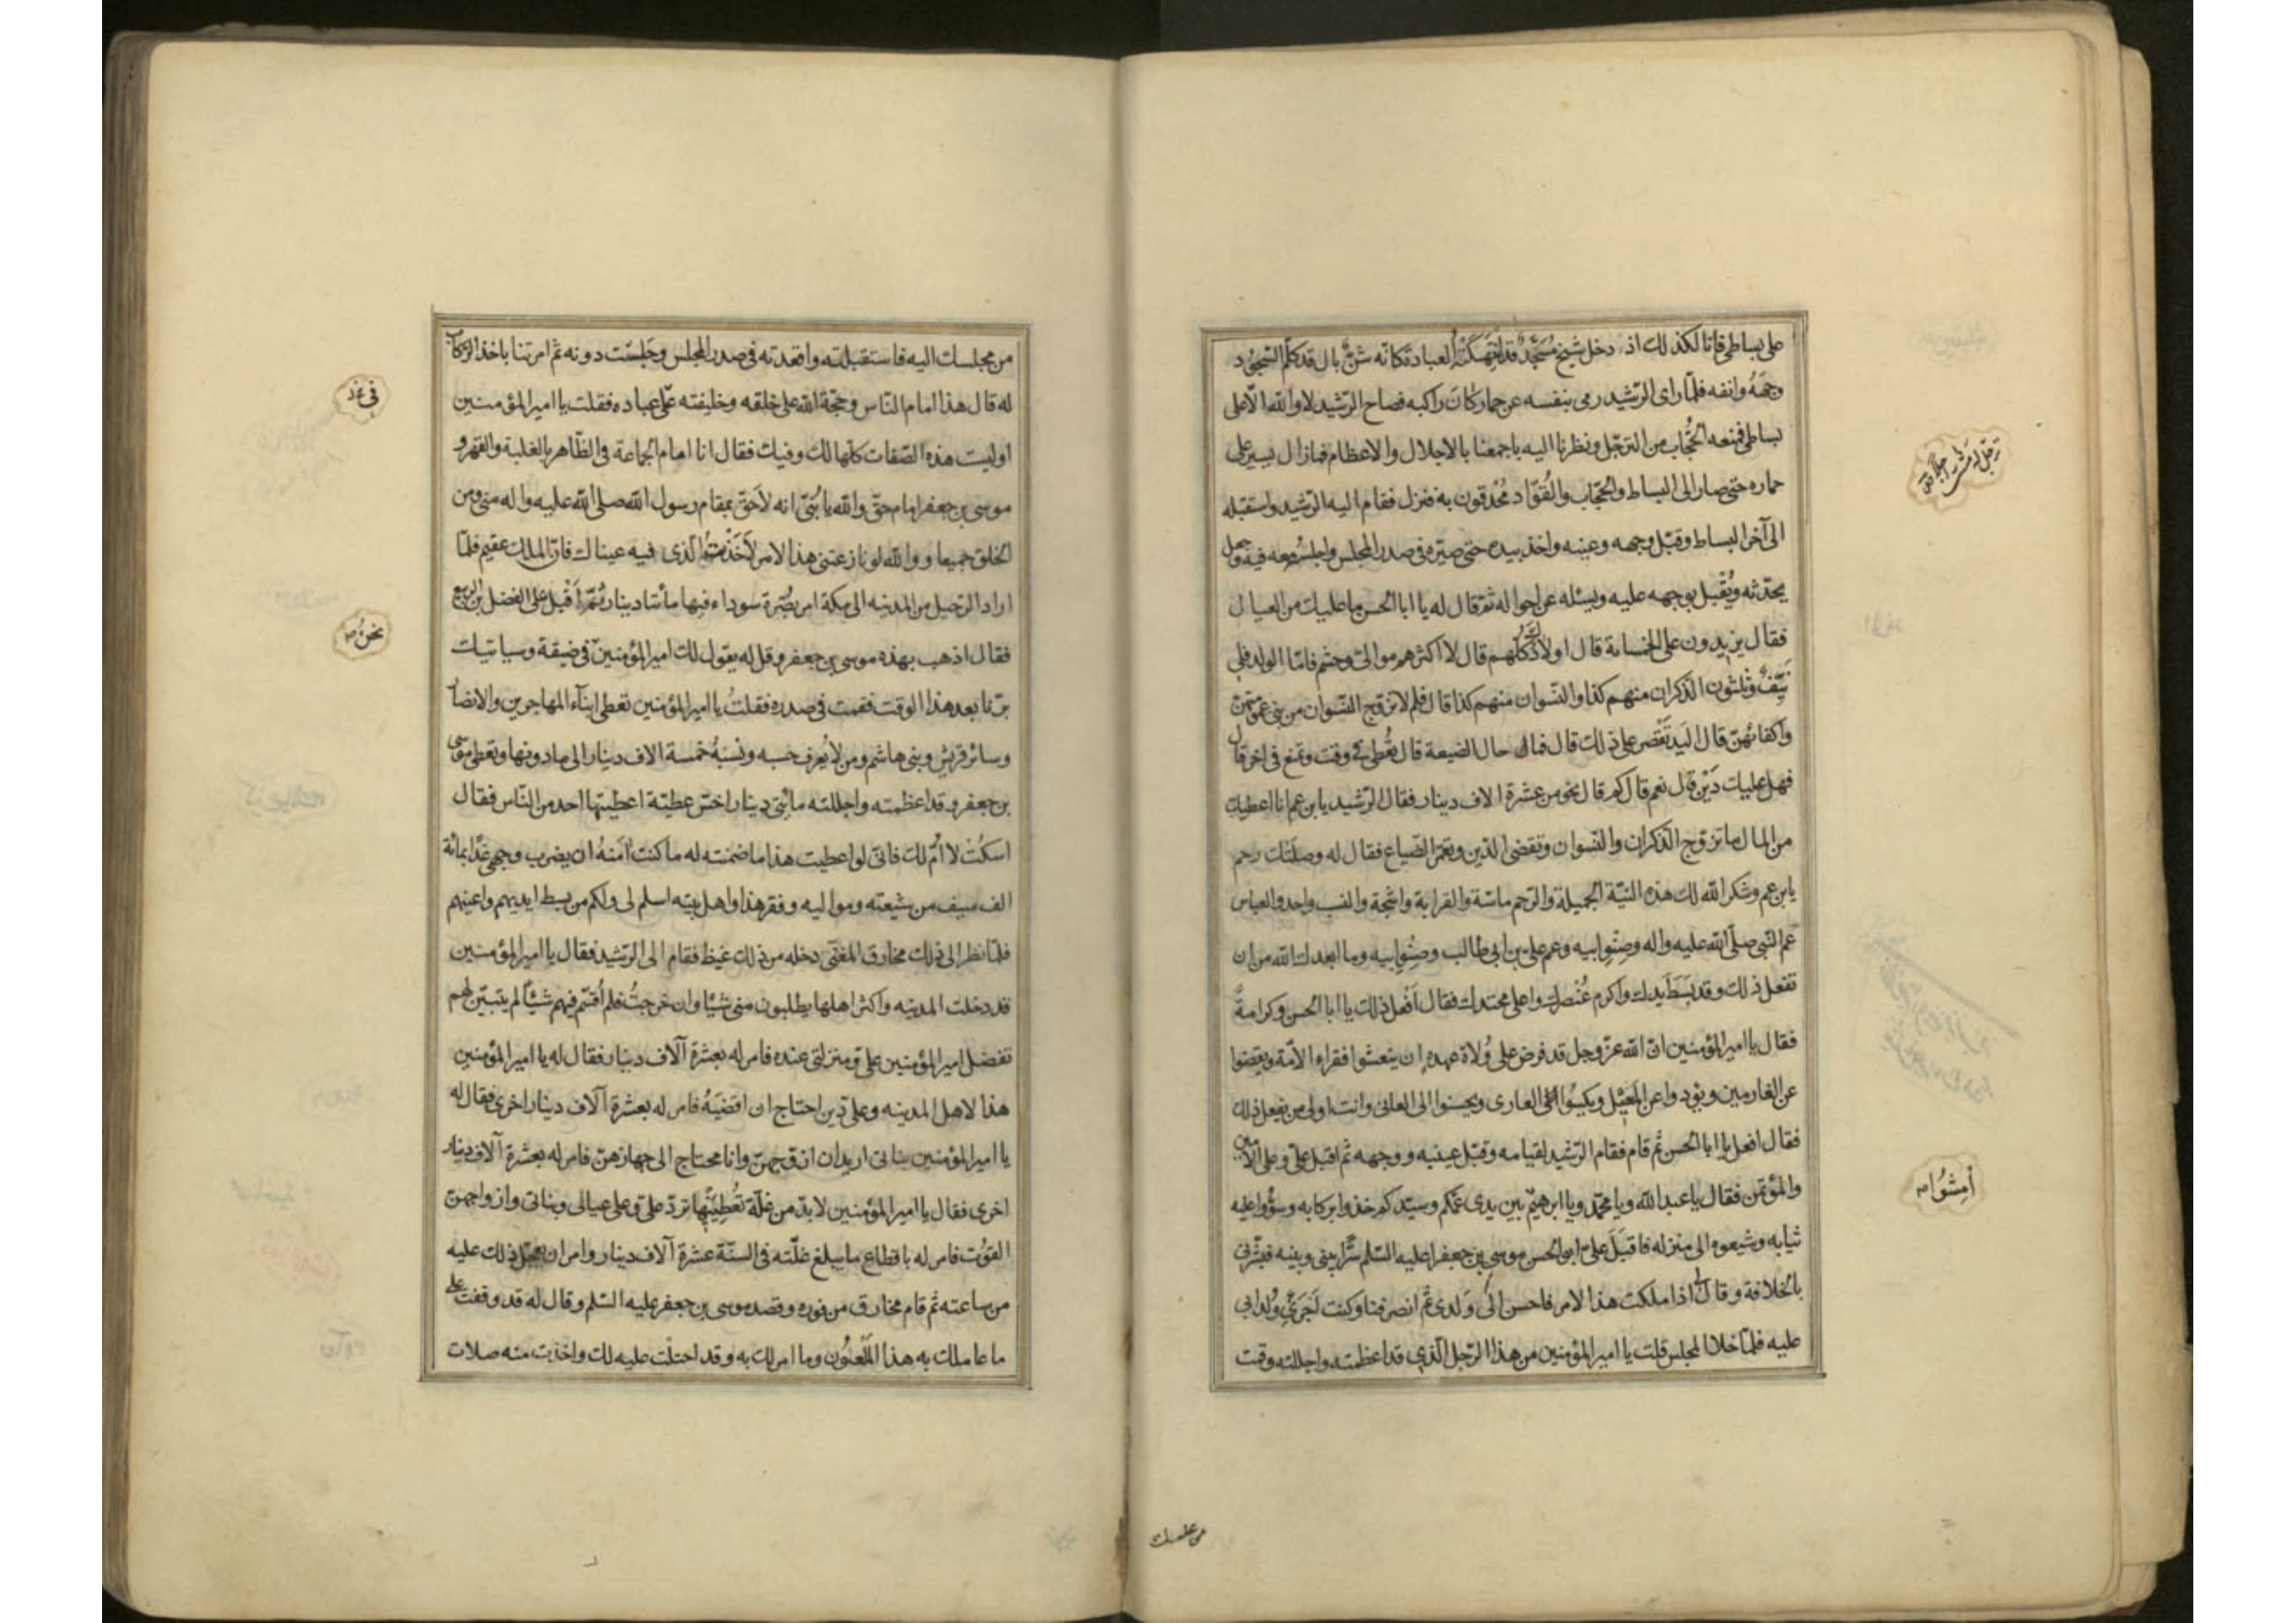 على بساطى فانا لكذلك اذ دخل شيخ مُسَخَّدٌ قد انهكته العبادة كانّه شنٌّ بال قد كلم السّجود
وجهَهُ وانفه فلمّا راى الرّشيد رمى بنفسه عن حمار كانَ راكبه فصاح الرّشيد لا والله الّا على
بساطى فمنعه الحُجّاب من الترجّل ونظرنا اليه باجمعنا بالاجلال والاعظام فمازال يسير على
حماره حتى صار الى البساط والحجّاب والقُوّاد مُحْدقون به فنزل فقام اليه الرّشيد واستقبله
الى آخر البساط وقبّل وجهه وعينيه واخذ بيده حتى صيّره فى صدر المجلس واجلسه معه فيه وجعل
يحدّثه ويُقْبل بوجهه عليه ويسئله عن احواله ثمّ قال له يا ابا الحسن ما عليك من العيال
فقال يزيدون على الخمسمائة قال اولادٌ كلّهم قال لا اكثرهم موالىّ وحشم فامّا الولد فلى
نيّفٌ وثلثون الذّكران منهم كذا والنّسوان منهم كذا قال فلم لا تزوّج النّسوان من بنى عمومتهنّ
واكفائهنّ قال اليد تَقْصر على ذلك قال فما حال الضيعة قال تُعْطى فى وقت وتمنع فى آخر قال
فهل عليك دَيْن قال نعم قال كم قال نحو من عشرة الاف دينار فقال الرّشيد يا بن عم انا اعطيك
من المال ما تزوّج الذّكران والنّسوان وتقضى الدّين وتعمّر الضّياع فقال له وصلتك رحم
يا بن عم وشكر الله لك هذه النيّة الجميلة والرّحم ماسّة والقرابة واشجة والنسب واحد والعباس
عم النّبى صلّى الله عليه واله وصنو ابيه وعم علىّ بن ابى طالب وصنو ابيه وما ابعدك الله من ان
تفعل ذلك وقد بَسَطَ يدك واكرم عُنْصرك واعلى محتدك فقال اَفْعل ذلك يا ابا الحسن وكرامةً
فقال يا امير المؤمنين انّ الله عزّ وجل قد فرض على وُلاة عهده ان ينعشوا فقراء الامّة ويقضوا
عن الغارمين ويؤدوا عن المُعيْل ويكسُوا العارى ويحسنوا الى العانى وانت اولى من يفعل ذلك
فقال افعل يا ابا الحسن ثم قام فقام الرّشيد لقيامه وقبّل عينيه ووجهه ثم اقبل علىّ وعلى الامين
والمؤتمن فقال يا عبد الله ويا محمّد ويا ابرهيم بين يدى عمّكم وسيّدكم خذوا بركابه وسوّوا عليه
ثيابه وشيعوه الى منزله فاقبَلَ علىّ ابو الحسن موسى بن جعفر عليه السّلم سرًّا بينى وبينه فبشّرنى
بالخلافة وقال لى اذا ملكت هذا الامر فاحسن الى وَلدى ثمّ انصرفنا وكنت اَجرى وُلد ابى
عليه فلمّا خلا المجلس قلت يا امير المؤمنين من هذا الرّجل الّذى قد اعظمته واجللته وقمت
امشُوا صح
من مجلسك
من مجلسك اليه فاستقبلته واقعدته فى صدر المجلس وجلسْت دونه ثم امرتنا باخذ الرّكاب
له قال هذا امام النّاس وحجّة الله على خلقه وخليفته على عباده فقلت يا امير المؤمنين
اوليست هذه الصّفات كلّها لك وفيك فقال انا امام الجماعة فى الظّاهر بالغلبة والقهر و
موسى بن جعفر امام حقّ والله يا بُنَىّ انه لاَحَقّ بمقام رسول الله صلى الله عليه واله منى ومن
الخلق جميعا ووالله لو نازعتنى هذا الامر لاَخَذْتُ الّذى فيه عيناك فانّ الملك عقيم فلمّا
اراد الرّحيل من المدينه الى مكة امر بصُرّة سوداء فيها مائتا دينار ثمّ اَقْبل على الفضل بن الربيع
فقال اذهب بهذه موسى بن جعفر وقل له يقول لك امير المؤمنين فى ضيقة وسياتيك
برّنا بعد هذا الوقت فقمت فى صدره فقلتُ يا امير المؤمنين تعطى ابناء المهاجرين والانصار
وسائر قريش وبنى هاشم ومن لا يُعرف حسبه ونسبهُ خمسة الاف دينار الى ما دونها وتعطى موسى
بن جعفر وقد اعظمته واجللته مائتى دينار اخسّ عطيّة اعطيتها احد من النّاس فقال
اسكُتْ لا امّ لك فانّى لو اعطيت هذا ما ضمنته له ما كنت آمنهُ ان يضرب وجهى غدًا بمائة
الف سيف من شيعته ومواليه وفقر هذا واهل بيته اسلم لى ولكم من بسط ايديهم واعينهم
فلمّا نظر الى ذلك مخارق المغنّى دخله من ذلك غيظ فقام الى الرّشيد فقال يا امير المؤمنين
قد دخلت المدينه واكثر اهلها يطلبون منى شيئا وان خرجتُ فلم اُقسّم فيهم شيئًا لم يتبيّن لهم
تفضل امير المؤمنين علىّ ومنزلتى عنده فامر له بعشرة آلاف دينار فقال له يا امير المؤمنين
هذا لاهل المدينه وعلى دين احتاج ان اقضيَهُ فامر له بعشرة آلاف دينار اخرى فقال له
يا امير المؤمنين بناتى اريد ان ازوّجهنّ وانا محتاج الى جهازهنّ فامر له بعشرة آلاف دينار
اخرى فقال يا امير المؤمنين لا بدّ من غلّة تُعْطينيها تردّ علىّ وعلى عيالى وبناتى وازواجهنّ
القوت فامر له باقطاع ما يبلغ غلّته فى السنّة عشرة آلاف دينار وامر ان يعجّل ذلك عليه
من ساعته ثم قام مخارق من فوره وقصد موسى بن جعفر عليه السّلم وقال له قد وقفت على
ما عاملك به هذا المَلْعُون وما امر لك به وقد احتلت عليه لك واخذت منه صلات
نحنُ صح